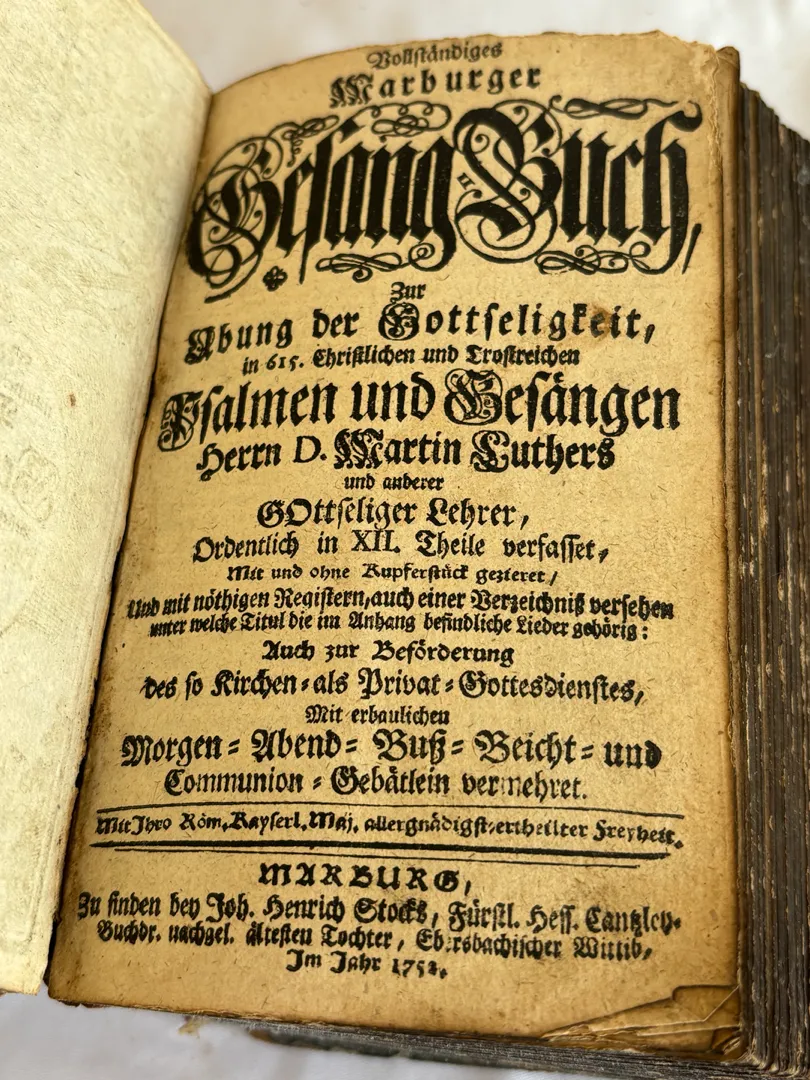 Vollständiges
Marburger
Gesäng Buch,
Zur
Übung der Gottseligkeit,
in 615. Christlichen und Trostreichen
Psalmen und Gesängen
Herrn D. Martin Luthers
und anderer
GOttseliger Lehrer,
Ordentlich in XII. Theile verfasset,
Mit und ohne Kupferstück gezieret/
Und mit nöthigen Registern, auch einer Verzeichniß versehen
unter welche Titul die im Anhang befindliche Lieder gehörig:
Auch zur Beförderung
des so Kirchen-als Privat-Gottesdienstes,
Mit erbaulichen
Morgen-Abend-Buß-Beicht-und
Communion-Gebätlein vermehret.
Mit Ihro Röm. Kayserl. Maj. allergnädigst-ertheilter Freyheit.
MARBURG,
Zu finden bey Joh. Henrich Stocks, Fürstl. Hess. Cantzley-
Buchdr. nachgel. ältesten Tochter, Ebersbachischer Wittib,
Im Jahr